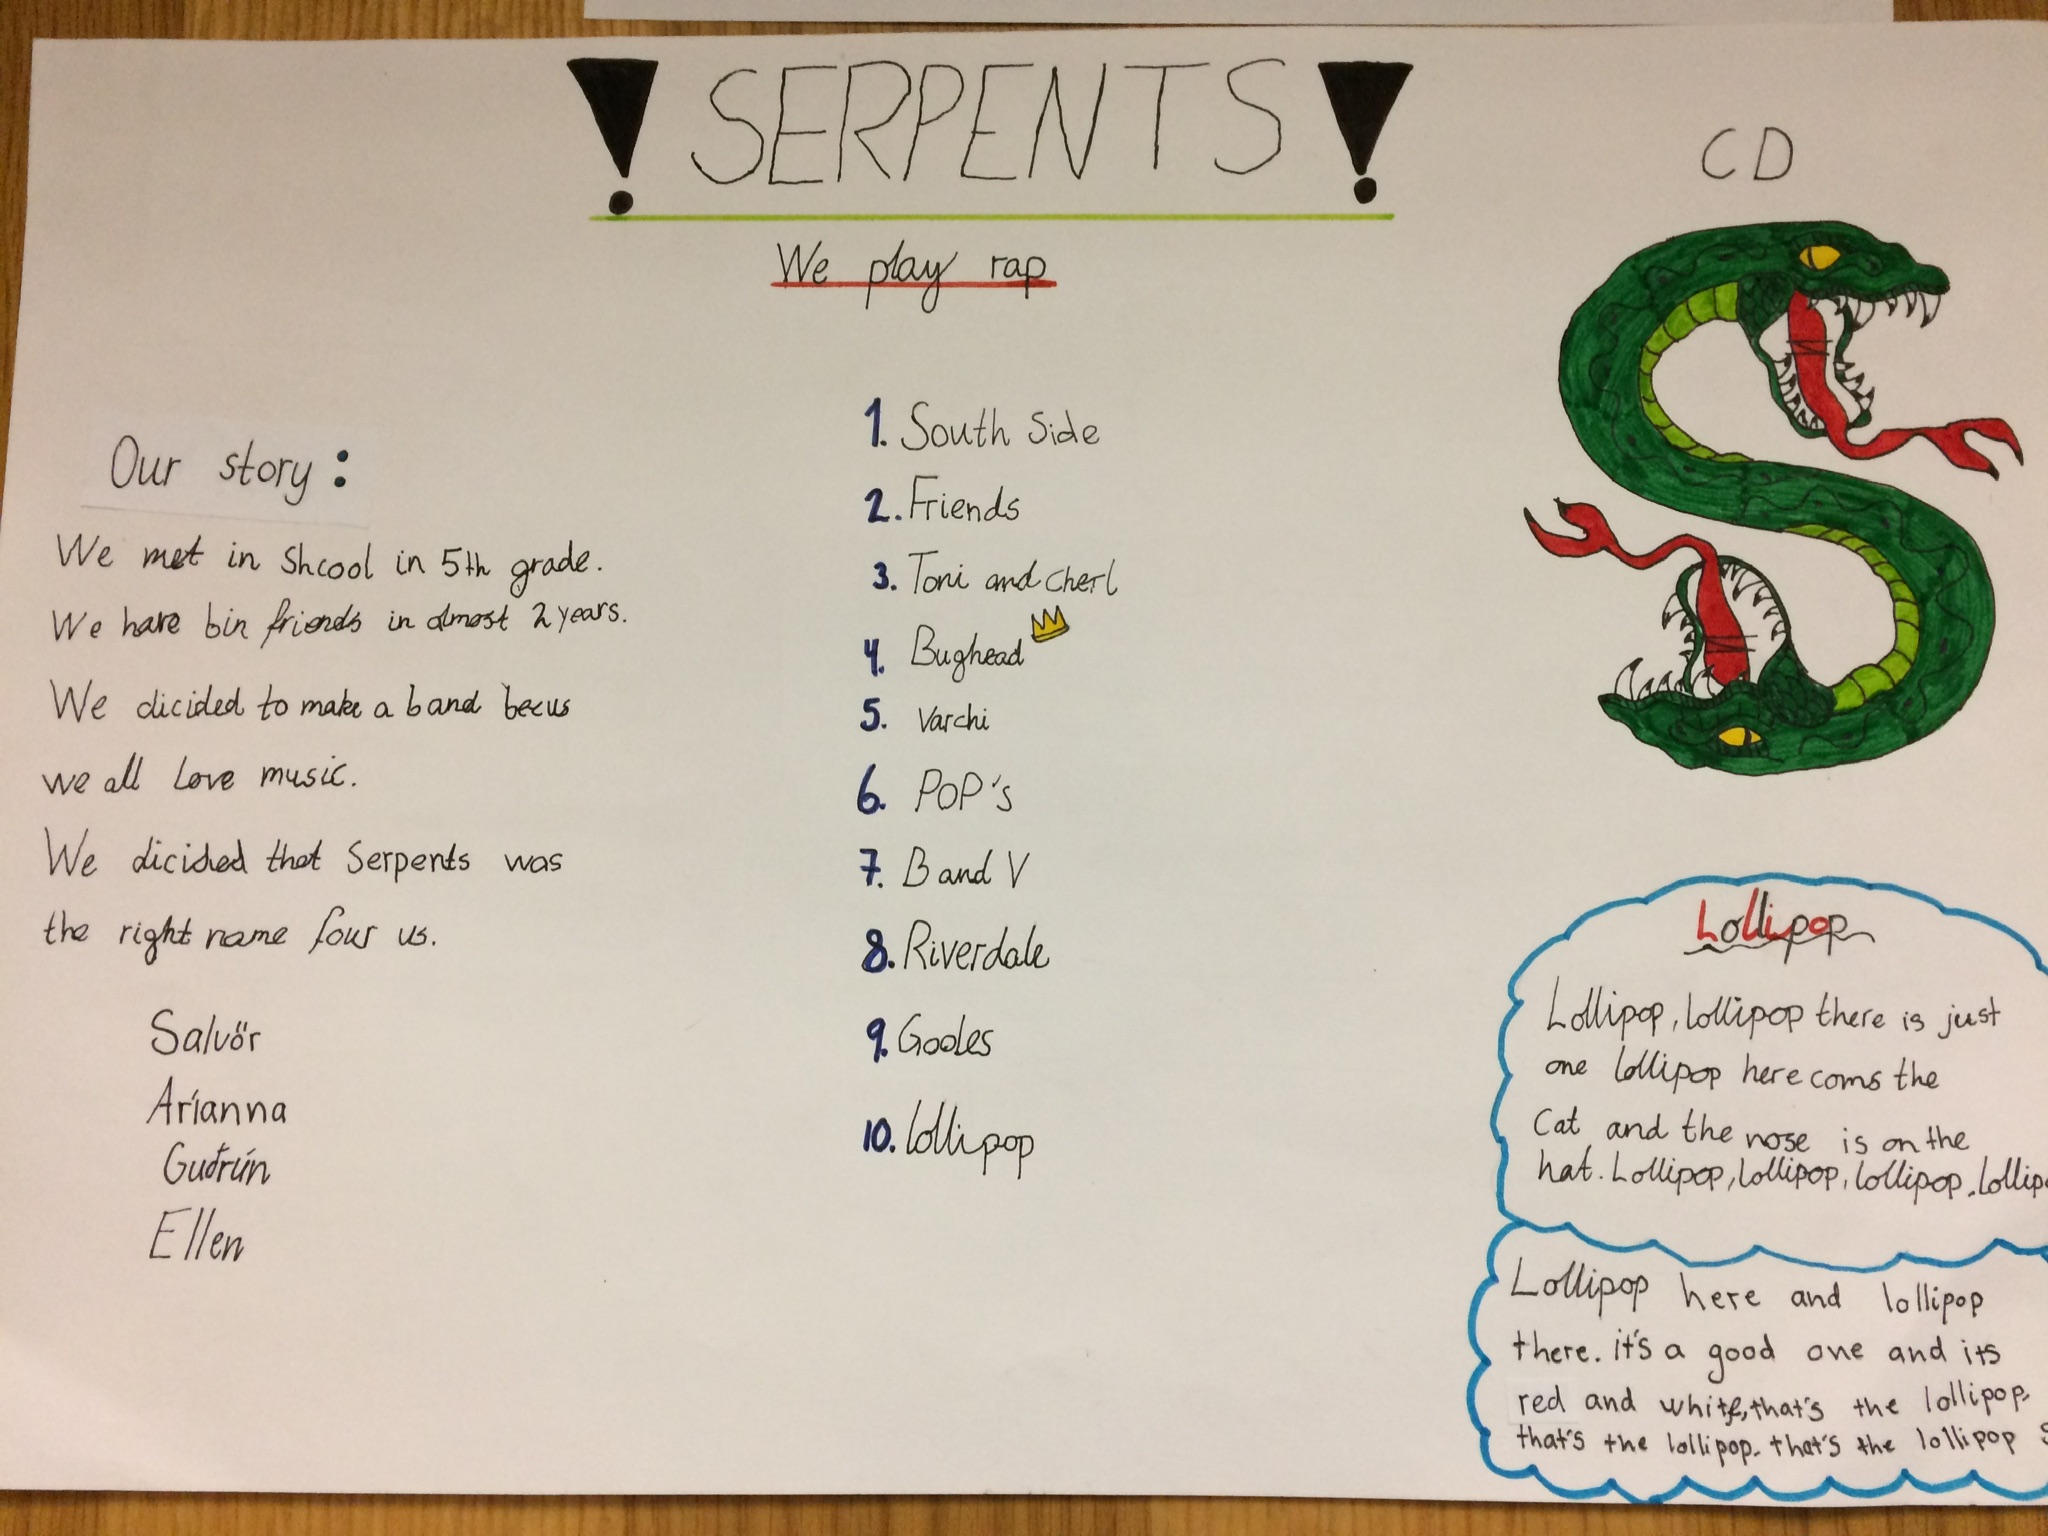 ! SERPENTS !
We play rap
Our story:
We met in Shcool in 5th grade.
We have bin friends in almost 2 years.
We dicided to make a band becus
we all Love music.
We dicided that Serpents was
the right name four us.
Salvör
Aríanna
Guðrún
Ellen
1. South Side
2. Friends
3. Toni and cherl
4. Bughead
5. Varchi
6. POP's
7. B and V
8. Riverdale
9. Gooles
10. lollipop
CD
Lollipop
Lollipop, lollipop there is just
one lollipop here coms the
Cat and the nose is on the
hat. Lollipop, lollipop, lollipop, Lollip
Lollipop here and lollipop
there. it's a good one and its
red and white, that's the lollipop.
that's the lollipop. that's the lollipop